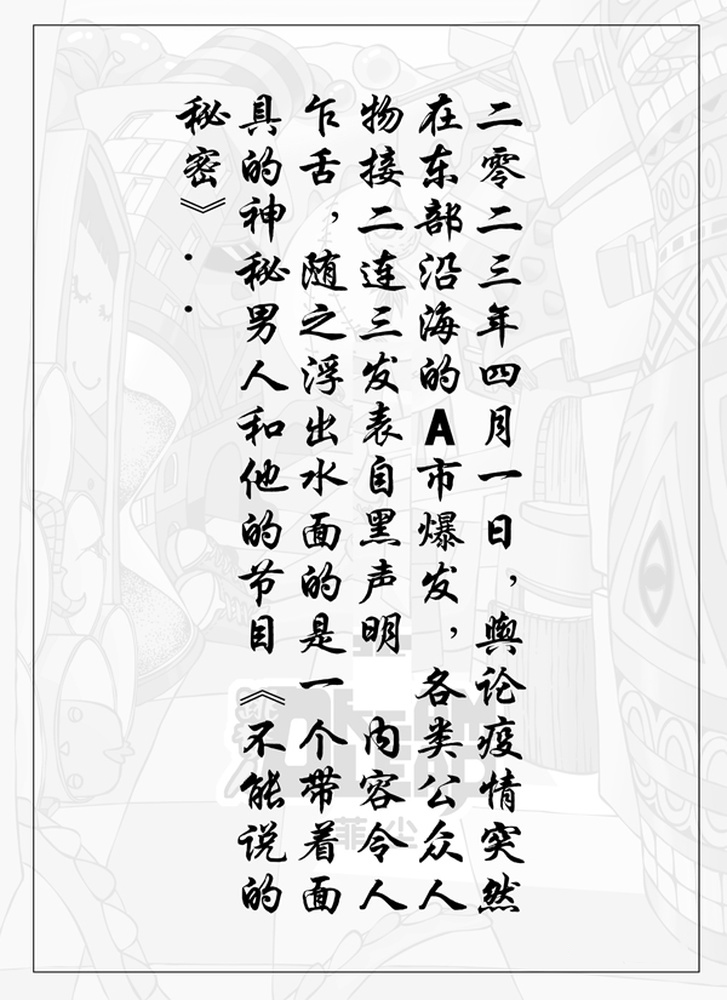 二零二三年四月一日，舆论疫情突然
在东部沿海的A市爆发，各类公众人
物接二连三发表自黑声明 内容令人
乍舌，随之浮出水面的是一个带着面
具的神秘男人和他的节目《不能说的
秘密》..
菲尘